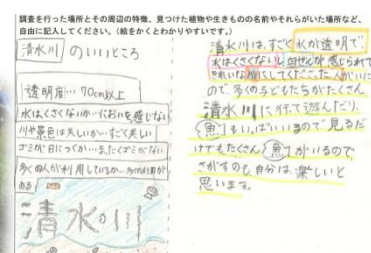 調査を行った場所とその周辺の特徴、見つけた植物や生きものの名前やそれらがいた場所など、
自由に記入してください。(絵をかくとわかりやすいです。)
清水川 のいいところ
透明度… 70cm以上
水はくさくないか…においを感じない
川や景色は美しいか…すごく美しい
ゴミが目につくか…まったくゴミがない
多くの人が利用しているか…多くの利用が
ある
清水の川
清水川は、すごく水が透明で
水はくさくないし自ぜんが感じられて
きれいな
ので、多くの子どもたちがたくさん
清水川に行って遊んだり、
魚もいっぱいいるので見るだ
けでもたくさん魚がいるので、
さがすのも自分は楽しいと
思います。